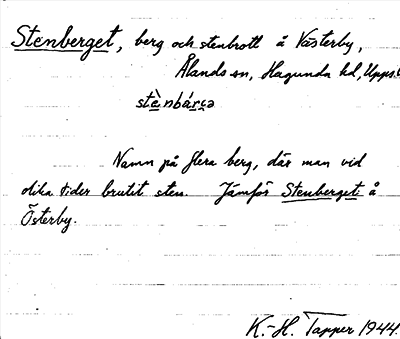 Stenberget, berg och stenbrott å Västerby,
Ålands sn, Hagunda hd, Upps. l
stè̱nbárgə
Namn på flera berg, där man vid
olika tider brutit sten. Jämför Stenberget å
Österby.
K.-H. Tapper 1944.